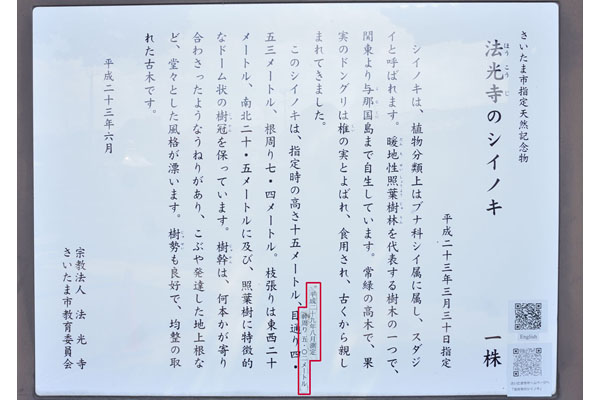 さいたま市指定天然記念物
法光寺のシイノキ 一株
ほうこうじ
平成二十三年三月三十日指定
シイノキは、植物分類上はブナ科シイ属に属し、スダジ
イと呼ばれます。暖地性照葉樹林を代表する樹木の一つで、
関東より与那国島まで自生しています。常緑の高木で、果
実のドングリは椎の実とよばれ、食用され、古くから親し
まれてきました。
このシイノキは、指定時の高さ十五メートル、目通り四・
平成二十九年八月測定
幹周り五・〇二メートル
五三メートル、根周り七・四メートル。枝張りは東西二十
メートル、南北二十・五メートルに及び、照葉樹に特徴的
なドーム状の樹冠を保っています。樹幹は、何本かが寄り
合わさったようなうねりがあり、こぶや発達した地上根な
ど、堂々とした風格が漂います。樹勢も良好で、均整の取
れた古木です。
平成二十三年六月
宗教法人 法光寺
さいたま市教育委員会
English